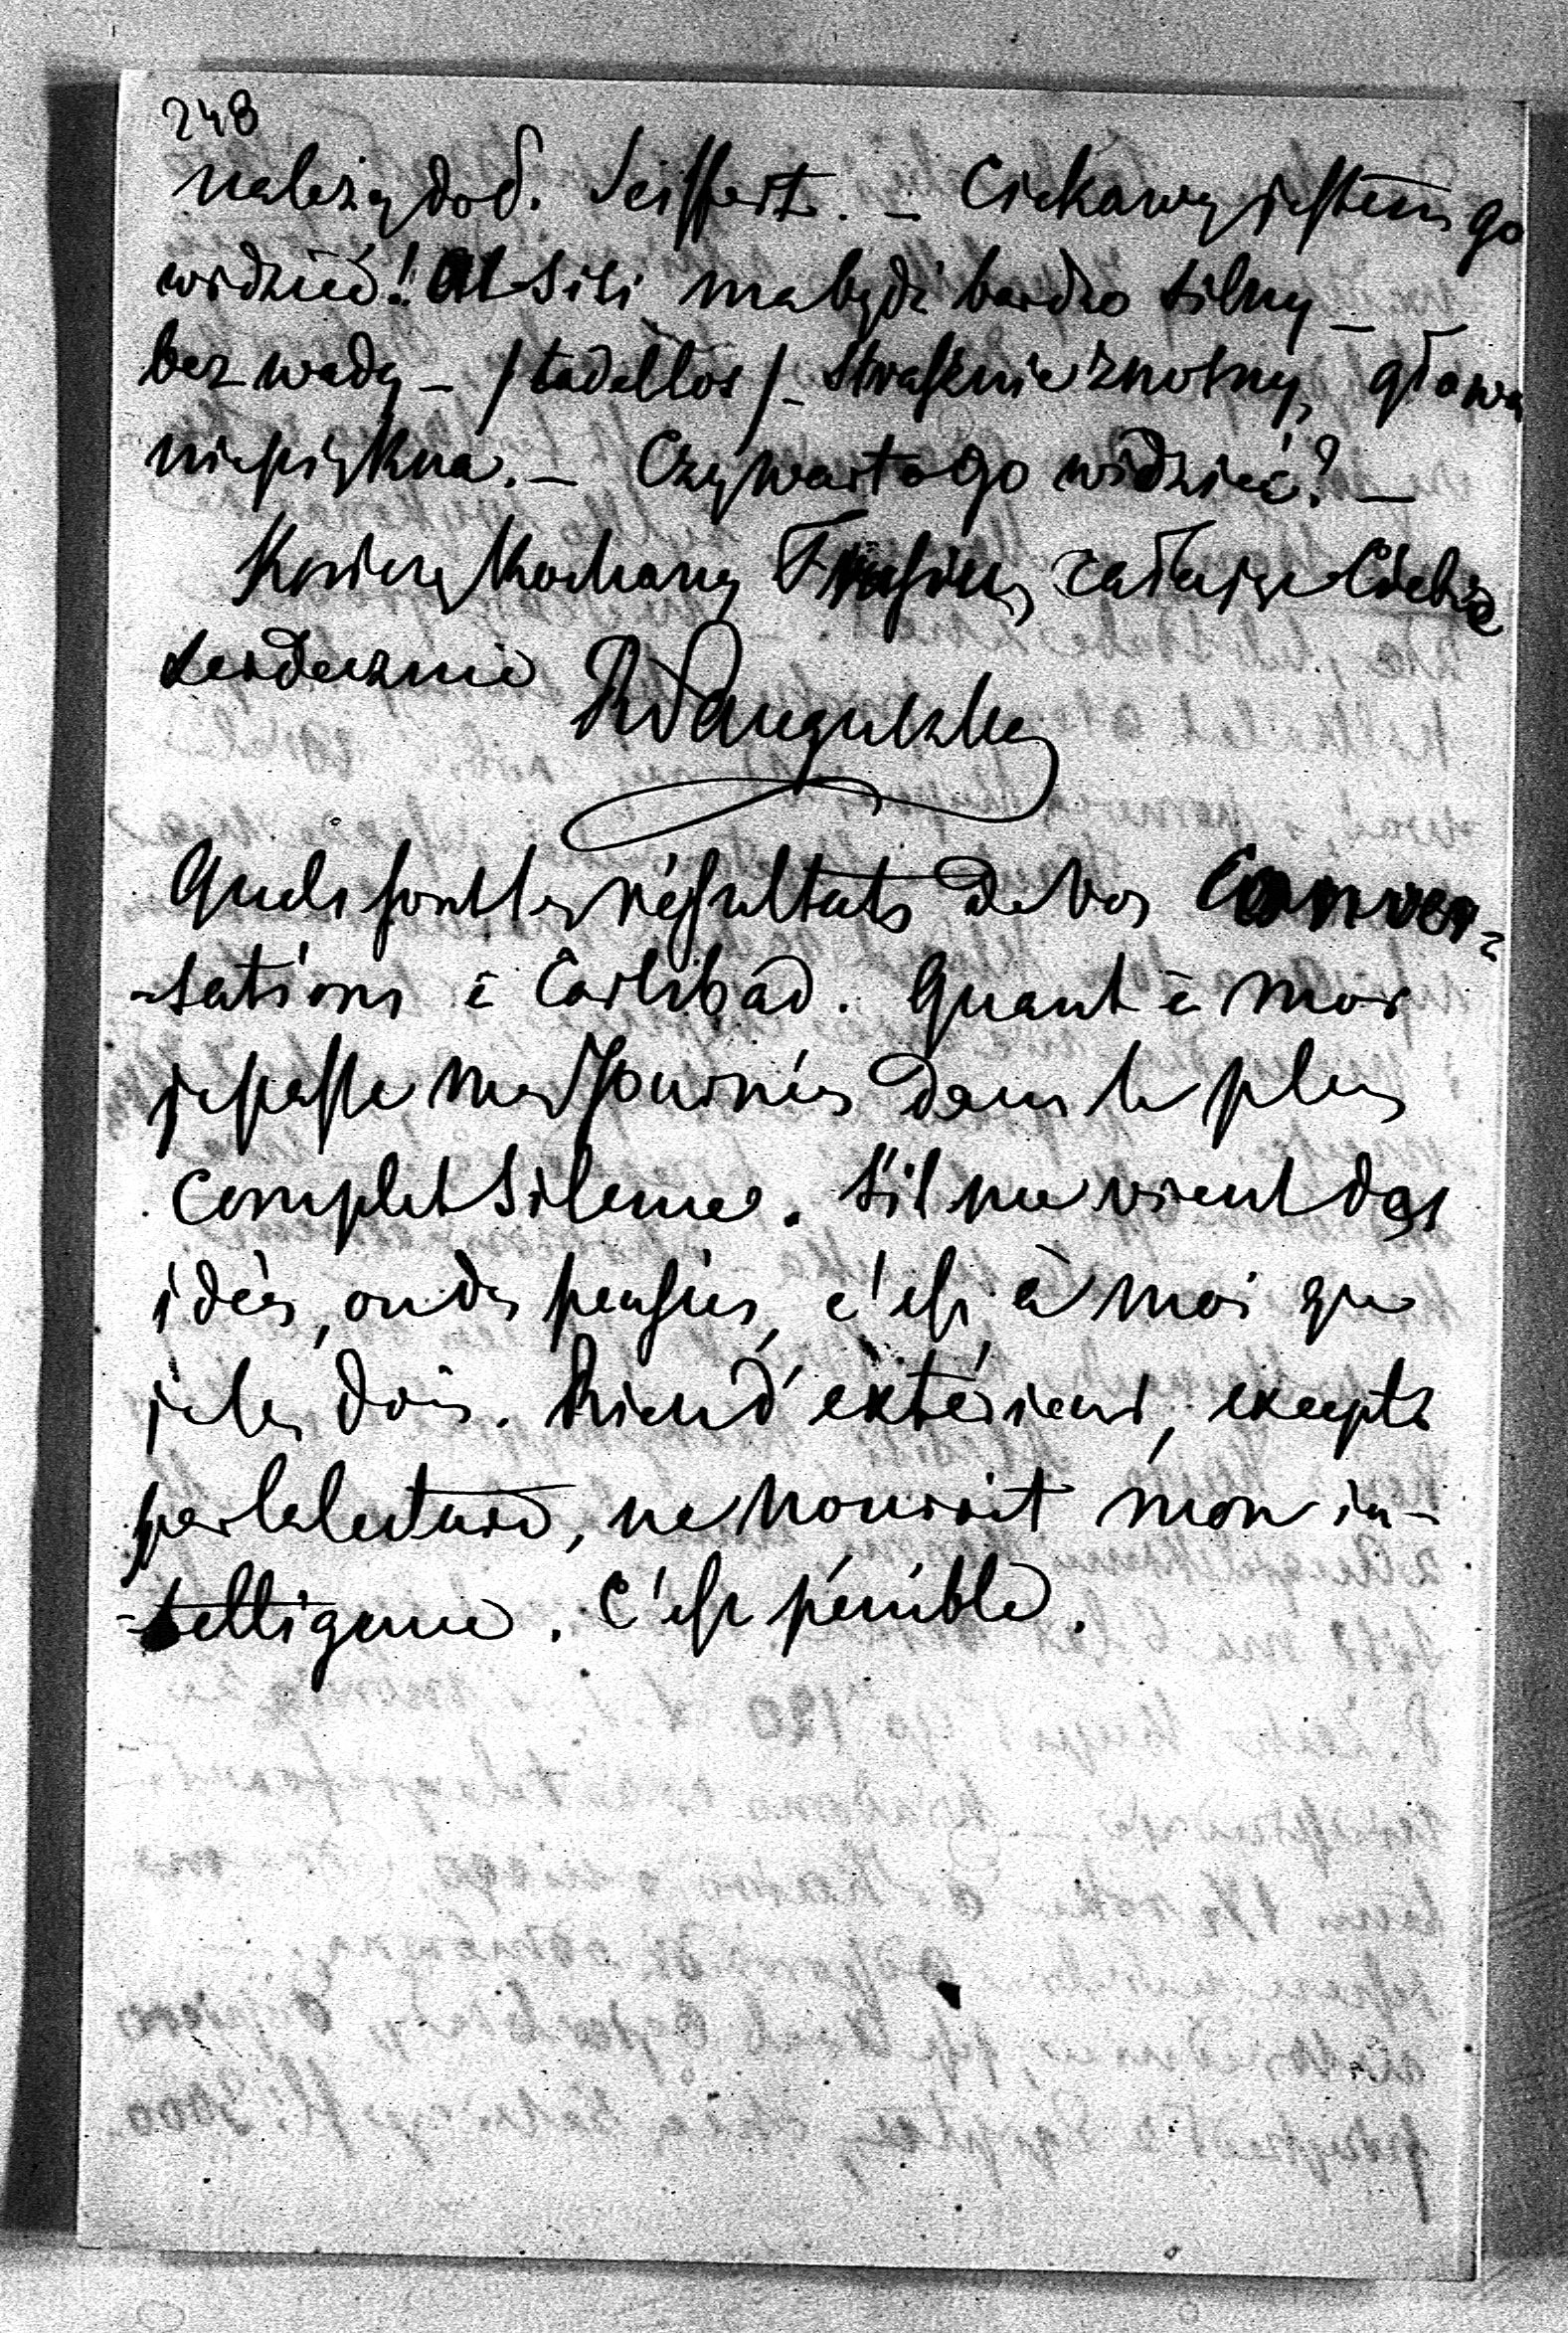 248
należy do d. Seiffert. – Ciekawy jestem go
widzieć! El Sisi ma bydź bardzo silny –
bez wady – /tadellos/ – strasznie znośny, głowa
niepiękna. – Czy warto go widzieć? –
Kończę kochany całując Ciebie
serdecznie RSanguszko
Quels sont les résultats de vos conver-
-sations à Carlsbad. Quant à moi
je passe mes journées dans le plus
complet silence. S'il me vient des
idées, ou des pensées, c'est à moi que
je les dois. Rien d'extérieur, excepté
par la lecture, ne nourrit mon in-
-telligence. C'est pénible.